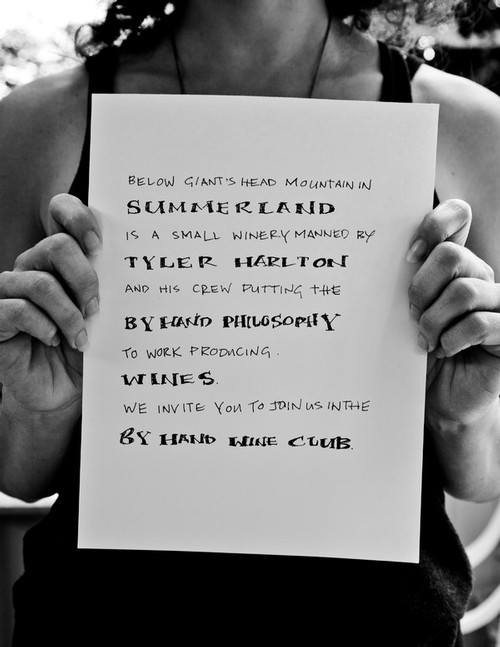 BELOW GIANT'S HEAD MOUNTAIN IN
SUMMERLAND
IS A SMALL WINERY MANNED BY
TYLER HARLTON
AND HIS CREW PUTTING THE
BY HAND PHILOSOPHY
TO WORK PRODUCING.
WINES.
WE INVITE YOU TO JOIN US IN THE
BY HAND WINE CLUB.